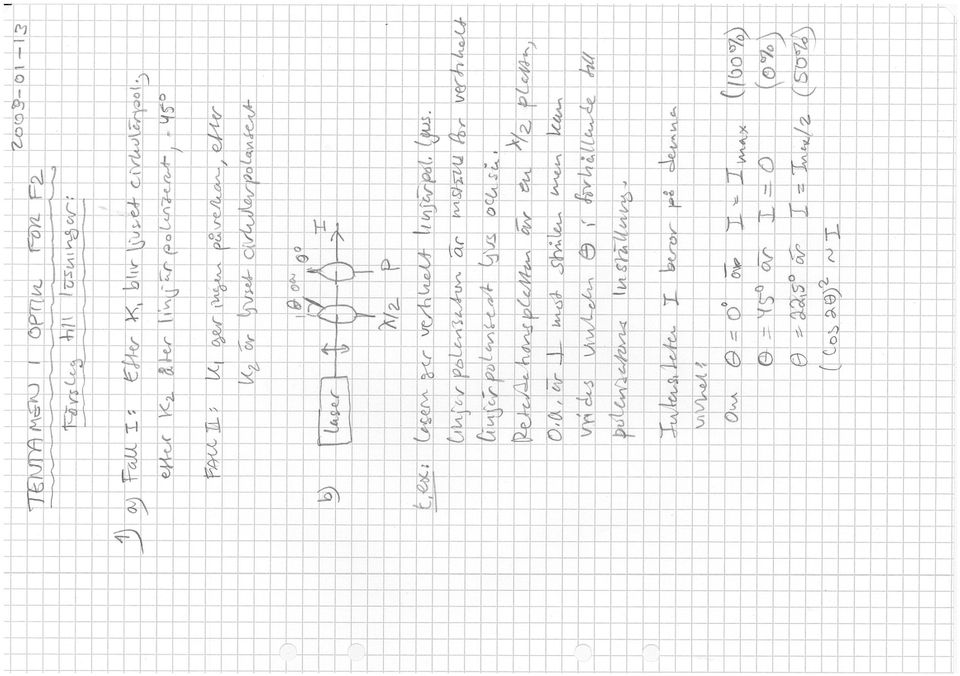 TENTAMEN I OPTIK FÖR F2 2009-01-13
Förslag till lösningar:
1) a) Fall I: Efter K1 blir ljuset cirkulärpol.,
efter K2 åter linjärpolariserat, -45°
FALL II: K1 ger ingen påverkan, efter
K2 är ljuset cirkulärpolariserat
b) Laser θ oa 0° I
λ/2 P
t.ex: Lasern ger vertikalt linjärpol. ljus.
Linjärpolarisatorn är inställd för vertikalt
linjärpolariserat ljus också.
Retardationsplattan är en λ/2 plattan,
O.a. är ⊥ mot strålen men kan
vridas vinkeln θ i förhållande till
polarisatorns inställning.
Intensiteten I beror på denna
vinkel:
Om θ = 0° är I = Imax (100%)
θ = 45° är I = 0 (0%)
θ = 22,5° är I = Imax/2 (50%)
(cos 2θ)² ~ I